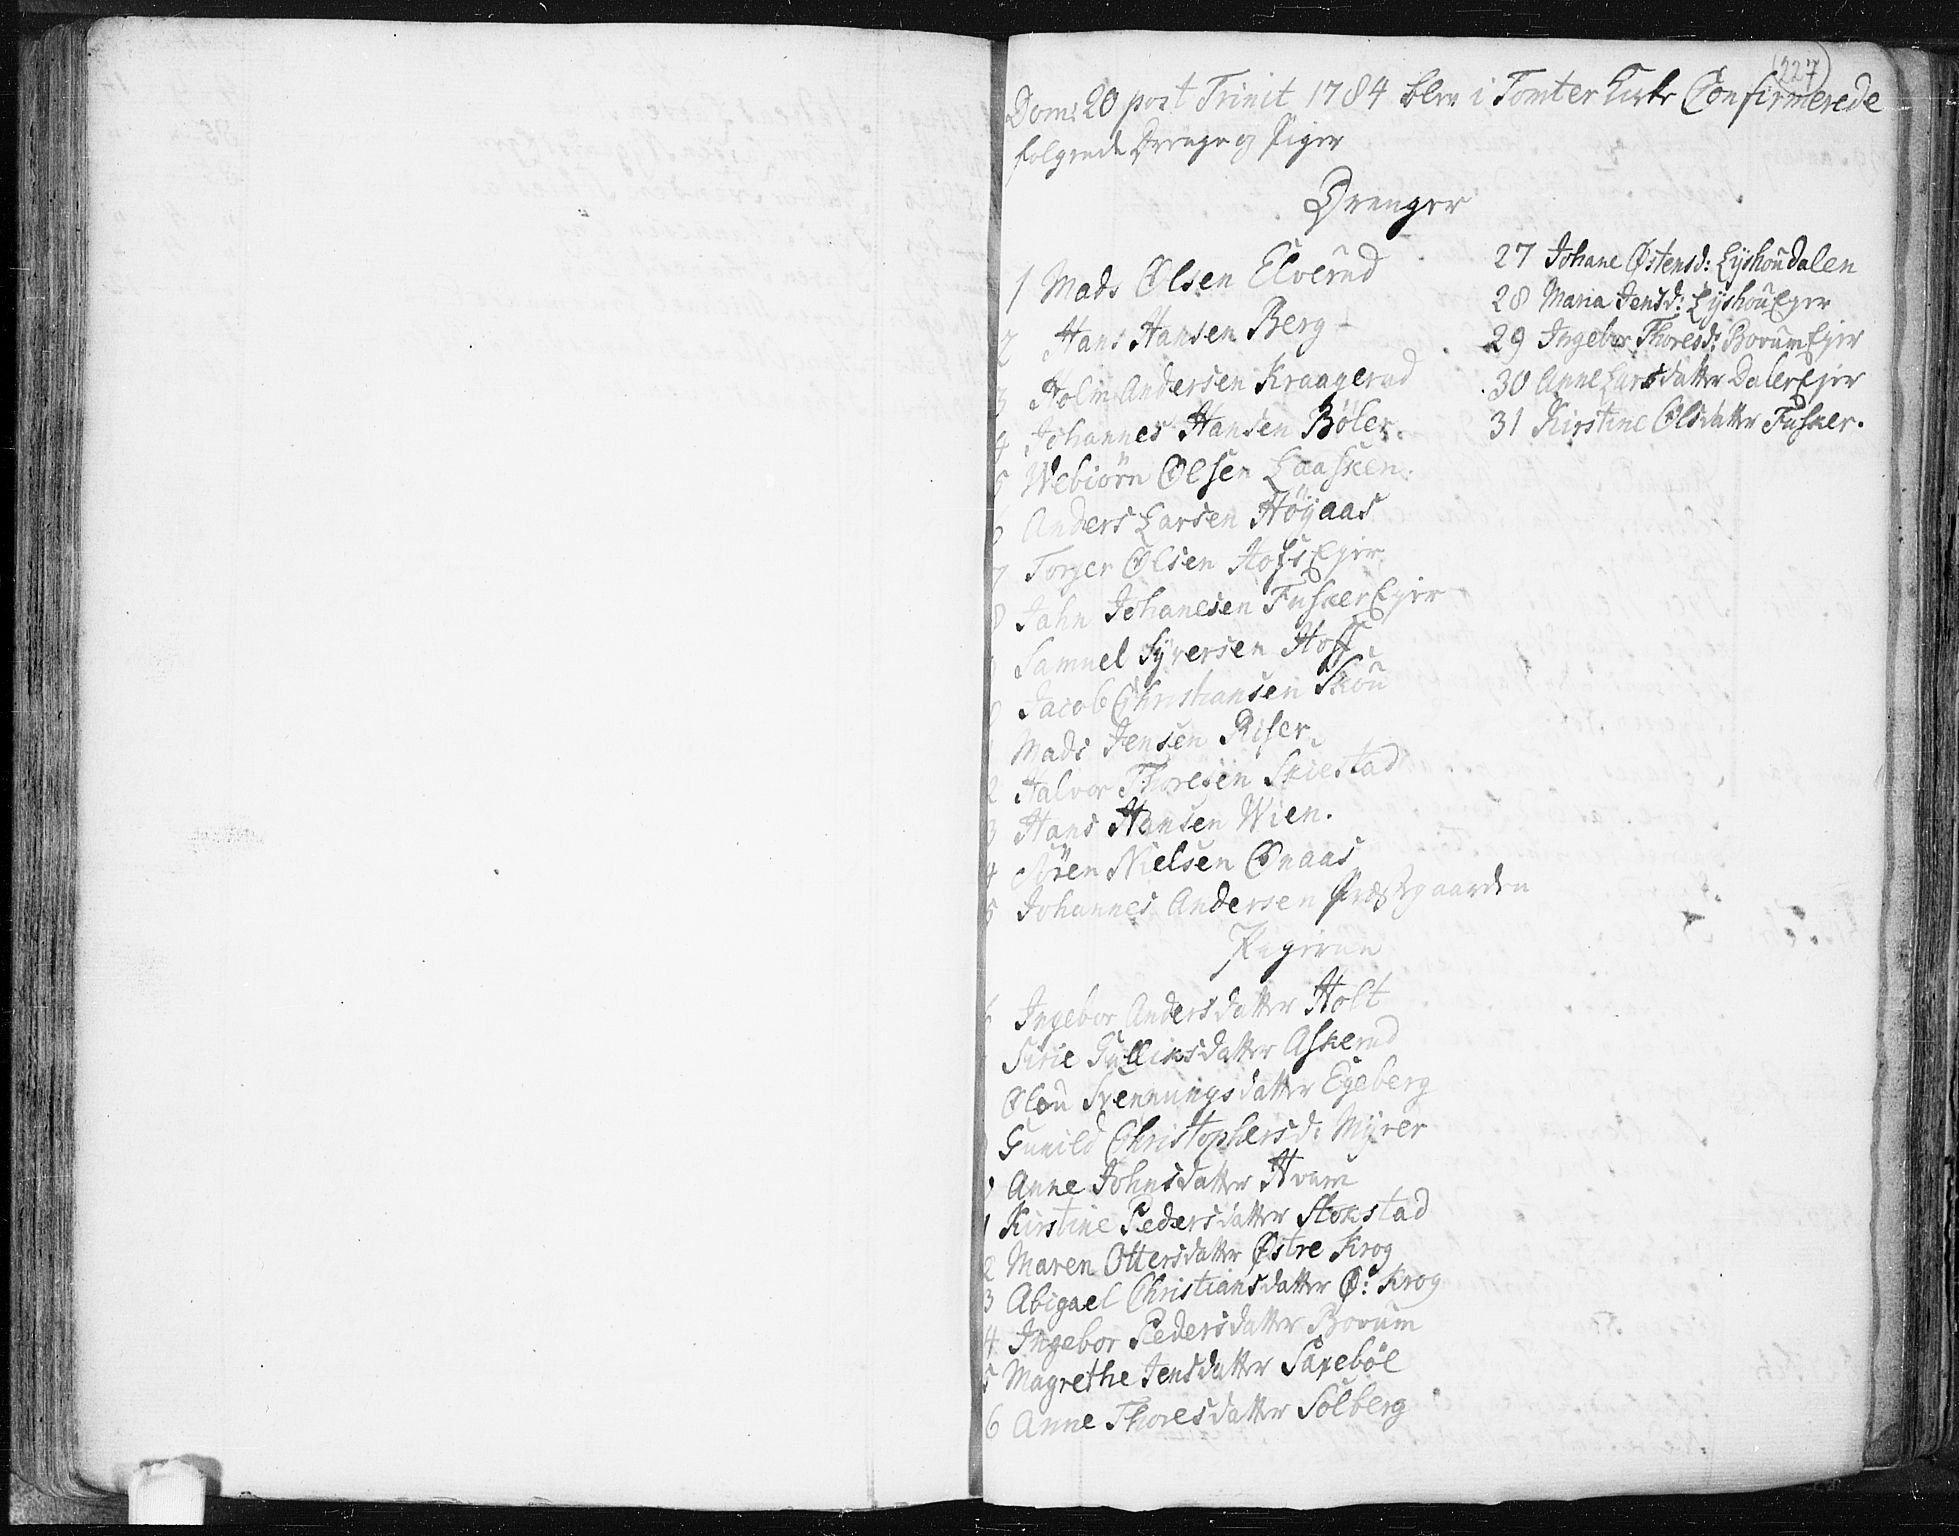 227
Dom: 20 post Trinit 1784 blev i Tomter Kirke Confirmerede
følgende Drenge og Piger
Drenger
1 Mads Olsen Elverud
2 Hans Hansen Berg
3 Holm Andersen Kraagerud
4 Johannes Hansen Böler
5 Webiörn Olsen Laasken.
6 Anders Larsen Höÿaas
7 Torger Olsen HofsEjer
8 Jahn Johanesen FuskerEjer
Samuel Syversen Hoff
Jacob Christiansen Skou
Mads Jensen Riser
2 Halvor Thoresen Skiestad
3 Hans Hansen Wien.
4 Sören Nielsen Ønaas
5 Johannes Andersen Præstgaarden
Pigerne
6 Ingebor Andersdatter Holt
Sirie Gulliksdatter Askerud
Olou Svenningsdatter Egeberg
Gunild Christophersd: Myrer
Anne Johnsdatter Hvam
1 Kirstine Pedersdatter Stokstad
2 Maren Ottersdatter Østre Krog
3 Abigael Christiansdatter Ø: Krog
4 Ingebor Pedersdatter Bovum
5 Magrethe Jensdatter Saxeböl
6 Anne Thoresdatter Solberg
27 Johane Østensd: Lyshoudalen
28 Maria Jensd: LyshouEjer
29 Ingebor Thoresd: BovumEjer
30 Anne Larsdatter DalerEjer
31 Kirstine Olsdatter Fusker.